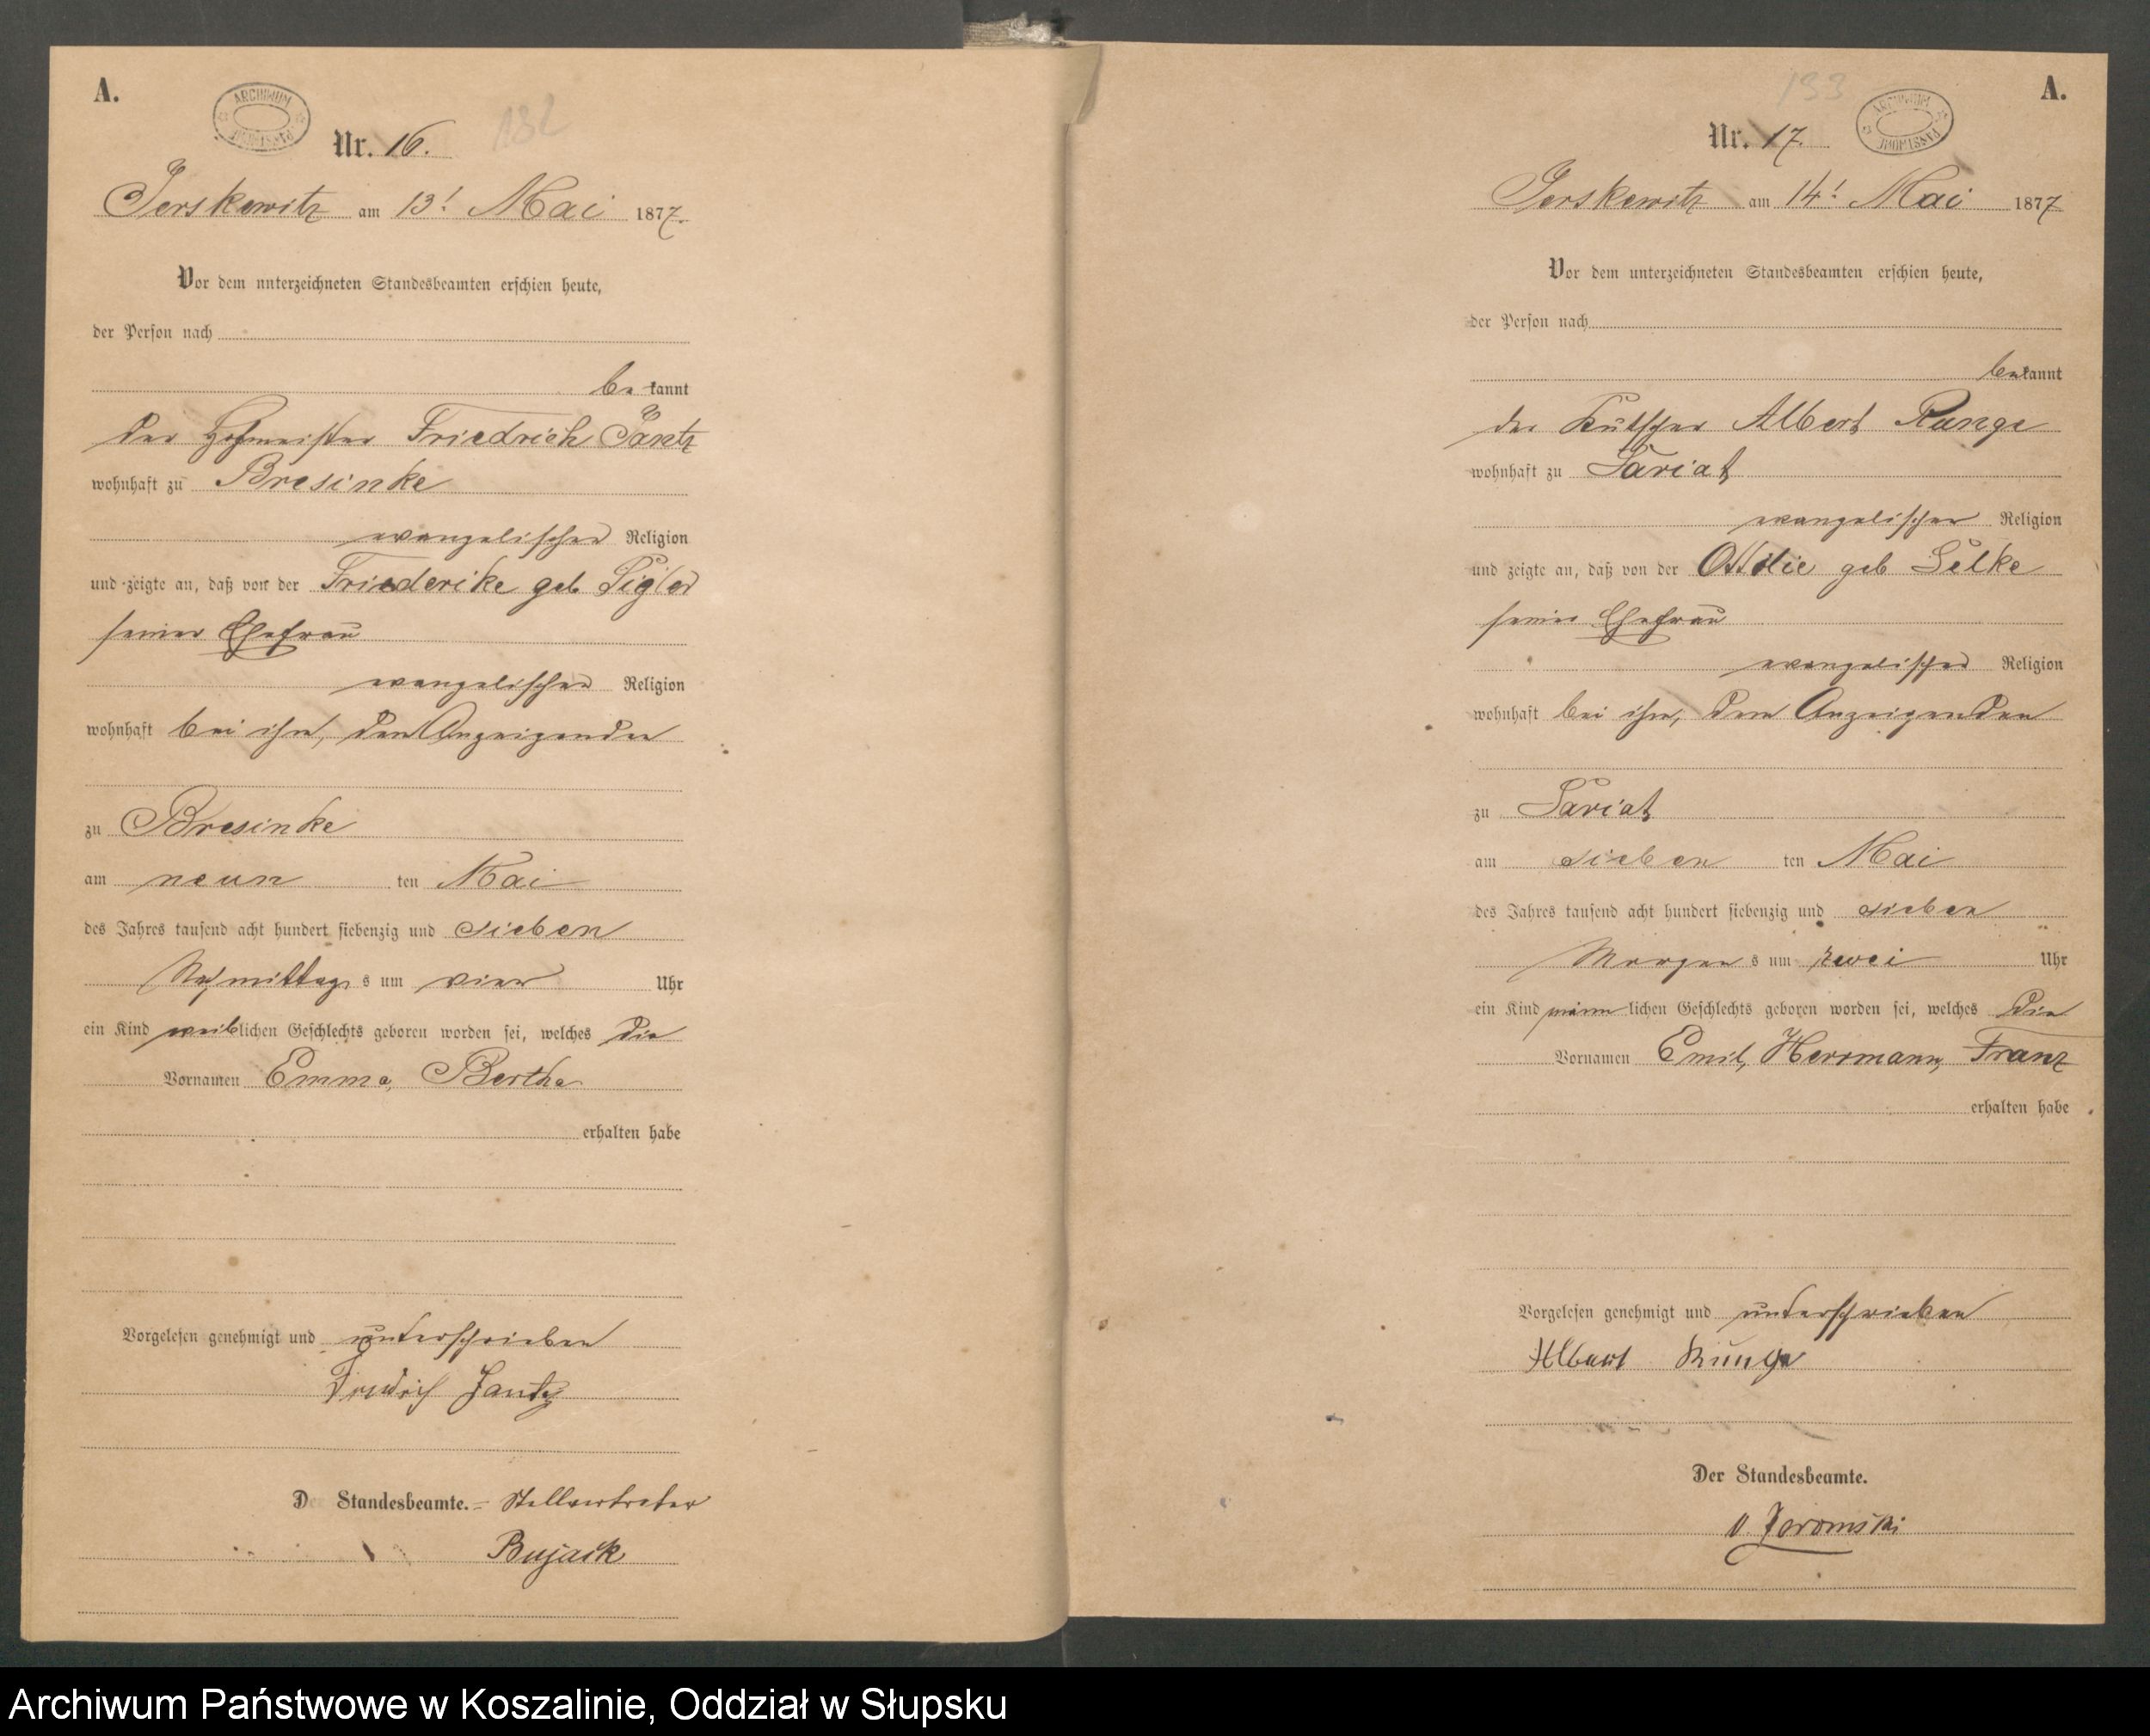 A.
ARCHIWUM
PAŃSTWOWE
Nr. 16.
132
Jerskewitz am 13t Mai 1877.
Vor dem unterzeichneten Standesbeamten erschien heute,
der Person nach
bekannt
der Hofmeister Friedrich Jantz
wohnhaft zu Bresinke
evangelischer Religion
und zeigte an, daß von der Friederike geb
seiner Ehefrau
evangelischer Religion
wohnhaft bei ihm, dem Anzeigenden
zu Bresinke
am neun ten Mai
des Jahres tausend acht hundert siebenzig und sieben
Nachmittags um vier Uhr
ein Kind weiblichen Geschlechts geboren worden sei, welches die
Vornamen Emma, Bertha
erhalten habe
Vorgelesen genehmigt und unterschrieben
Friedrich Jantz
D Standesbeamte. = Stellvertreter
Bujack
133
A.
ARCHIWUM
PAŃSTWOWE
Nr. 17.
Jerskewitz am 14t Mai 1877
Vor dem unterzeichneten Standesbeamten erschien heute,
der Person nach
bekannt
der Kutscher Albert Runge
wohnhaft zu
evangelischer Religion
und zeigte an, daß von der Ottilie geb
seiner Ehefrau
evangelischer Religion
wohnhaft bei ihm, dem Anzeigenden
zu
am sieben ten Mai
des Jahres tausend acht hundert siebenzig und sieben
Morgens um zwei Uhr
ein Kind männlichen Geschlechts geboren worden sei, welches die
Vornamen Emil, Herrmann, Franz
erhalten habe
Vorgelesen genehmigt und unterschrieben
Albert Runge
Der Standesbeamte.
v.
Archiwum Państwowe w Koszalinie, Oddział w Słupsku